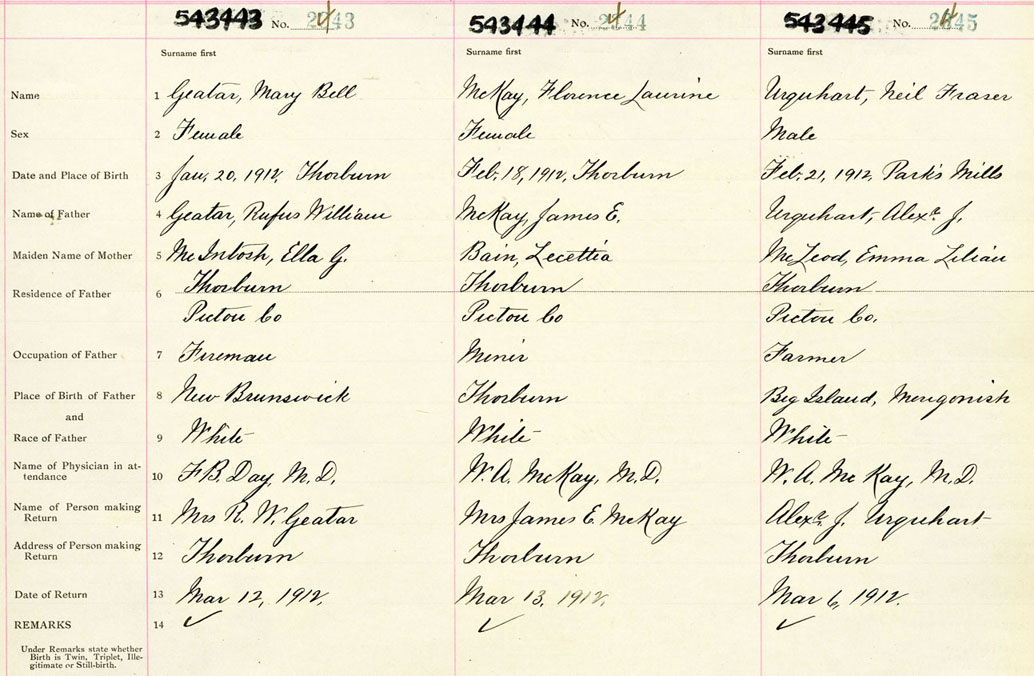 543443 No. 2443 543444 No. 2444 543445 No. 2445
Surname first Surname first Surname first
Name 1 Geatar, Mary Bell McKay, Florence Laurine Urquhart, Neil Fraser
Sex 2 Female Female Male
Date and Place of Birth 3 Jan. 20, 1912, Thorburn Feb. 18, 1912, Thorburn Feb. 21, 1912, Park's Mills
Name of Father 4 Geatar, Rufus William McKay, James E. Urquhart, Alexr. J.
Maiden Name of Mother 5 McIntosh, Ella G. Bain, Lecettia McLeod, Emma Lilian
Residence of Father 6 Thorburn Thorburn Thorburn
Pictou Co Pictou Co Pictou Co.
Occupation of Father 7 Fireman Miner Farmer
Place of Birth of Father 8 New Brunswick Thorburn Big Island, Merigonish
and
Race of Father 9 White White White
Name of Physician in at-
tendance 10 F. B. Day, M.D. W. A. McKay, M.D. W. A. McKay, M.D.
Name of Person making
Return 11 Mrs R. W. Geatar Mrs James E. McKay Alexr. J. Urquhart
Address of Person making
Return 12 Thorburn Thorburn Thorburn
Date of Return 13 Mar 12, 1912. Mar 13, 1912. Mar 6, 1912.
REMARKS 14 ✓ ✓ ✓
Under Remarks state whether
Birth is Twin, Triplet, Ille-
gitimate or Still-birth.